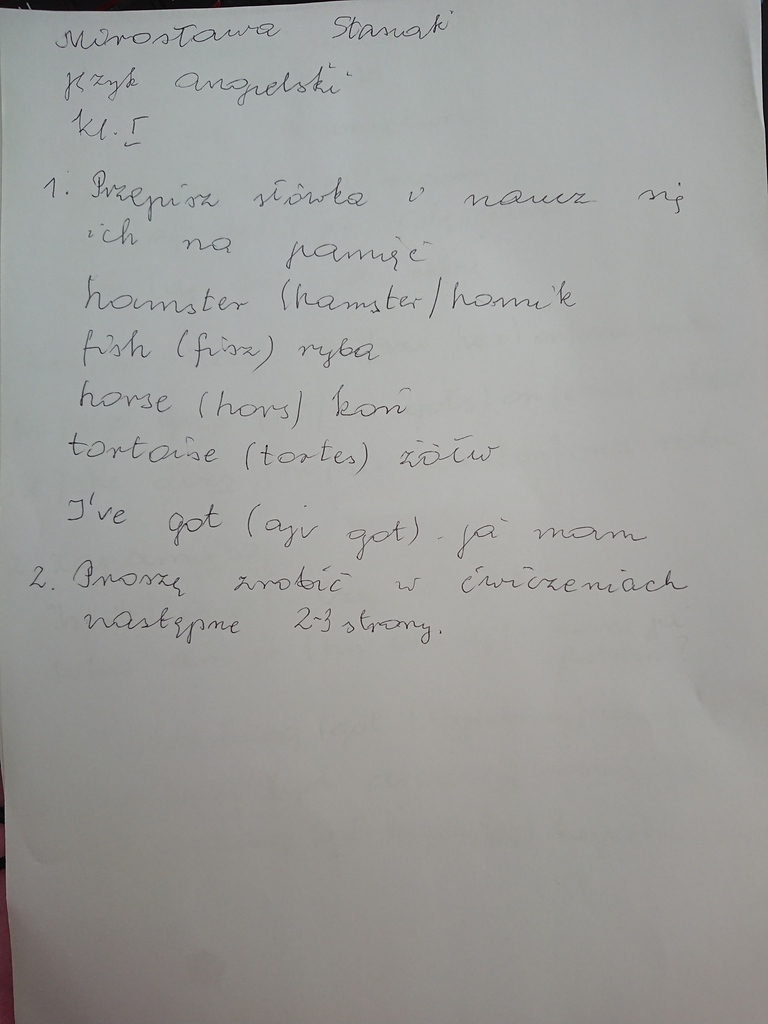 Mirosława Stasiak
język angielski
kl. I
1. Przepisz słówka i naucz się
ich na pamięć
hamster (hamster) chomik
fish (fisz) ryba
horse (hors) koń
tortoise (tortes) żółw
I've got (ajv got) - ja mam
2. Proszę zrobić w ćwiczeniach
następne 2-3 strony.